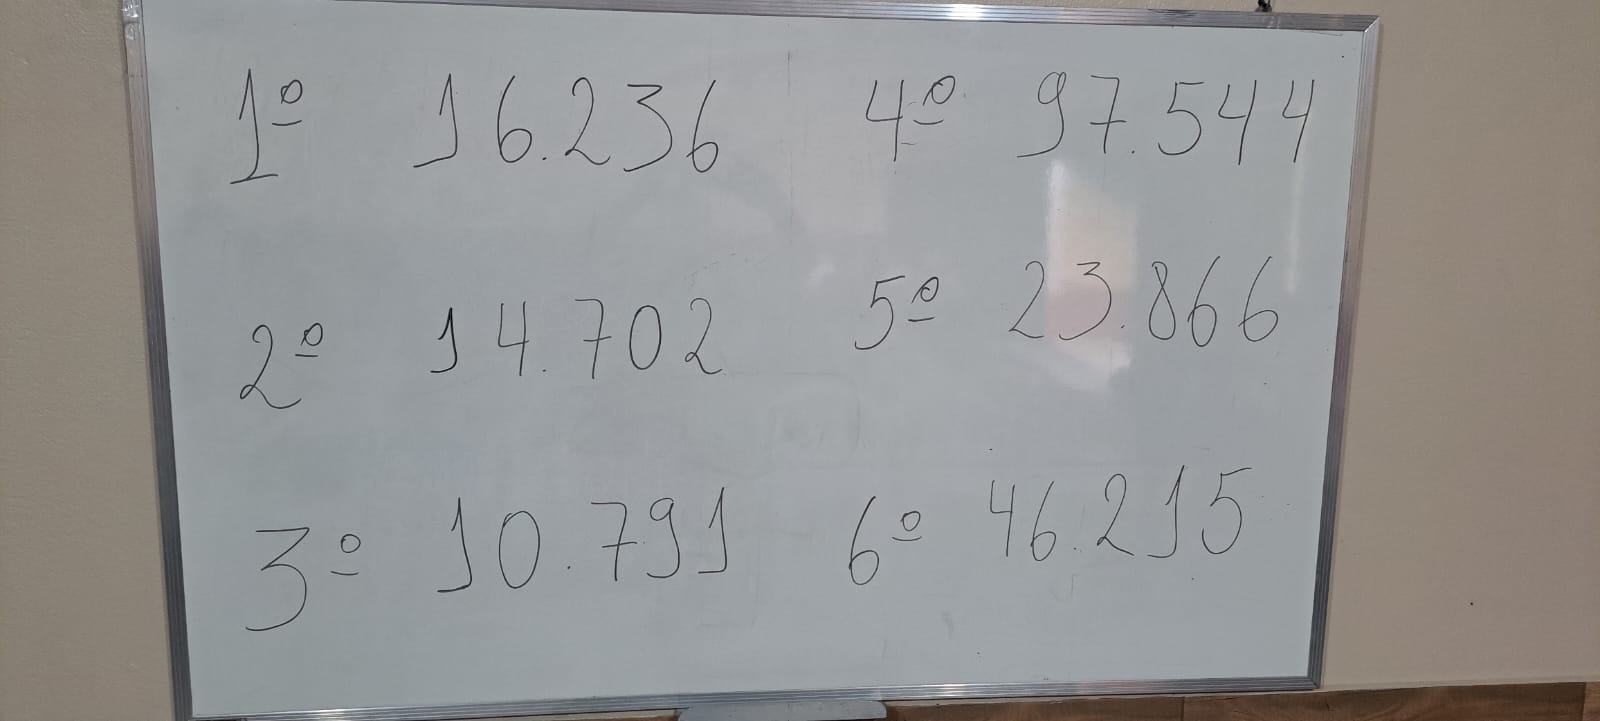 1º 16.236
2º 14.702
3º 10.791
4º 97.544
5º 23.866
6º 46.215